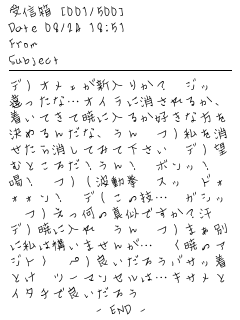 受信箱 [001/500]
Date 08/24 18:51
From
Subject
デ）オメェが新入りか？ ジッ
違ったな…オイラに消されるか、
着いてきて暁に入るか好きな方を
決めるんだな、うん フ）私を消
せたら消してみて下さい デ）望
むところだ！うん！ ボンッ！
喝！ フ）（波動拳 スッ ドォ
ォォン！ デ（この技… ガシッ
フ）えっ何の真似ですか？汗
デ）暁に入れ うん フ）まぁ別
に私は構いませんが… （暁のア
ジト） ペ）良いだろうバサッ着
とけ ツーマンセルは…キサメと
イタチで良いだろう
- END -